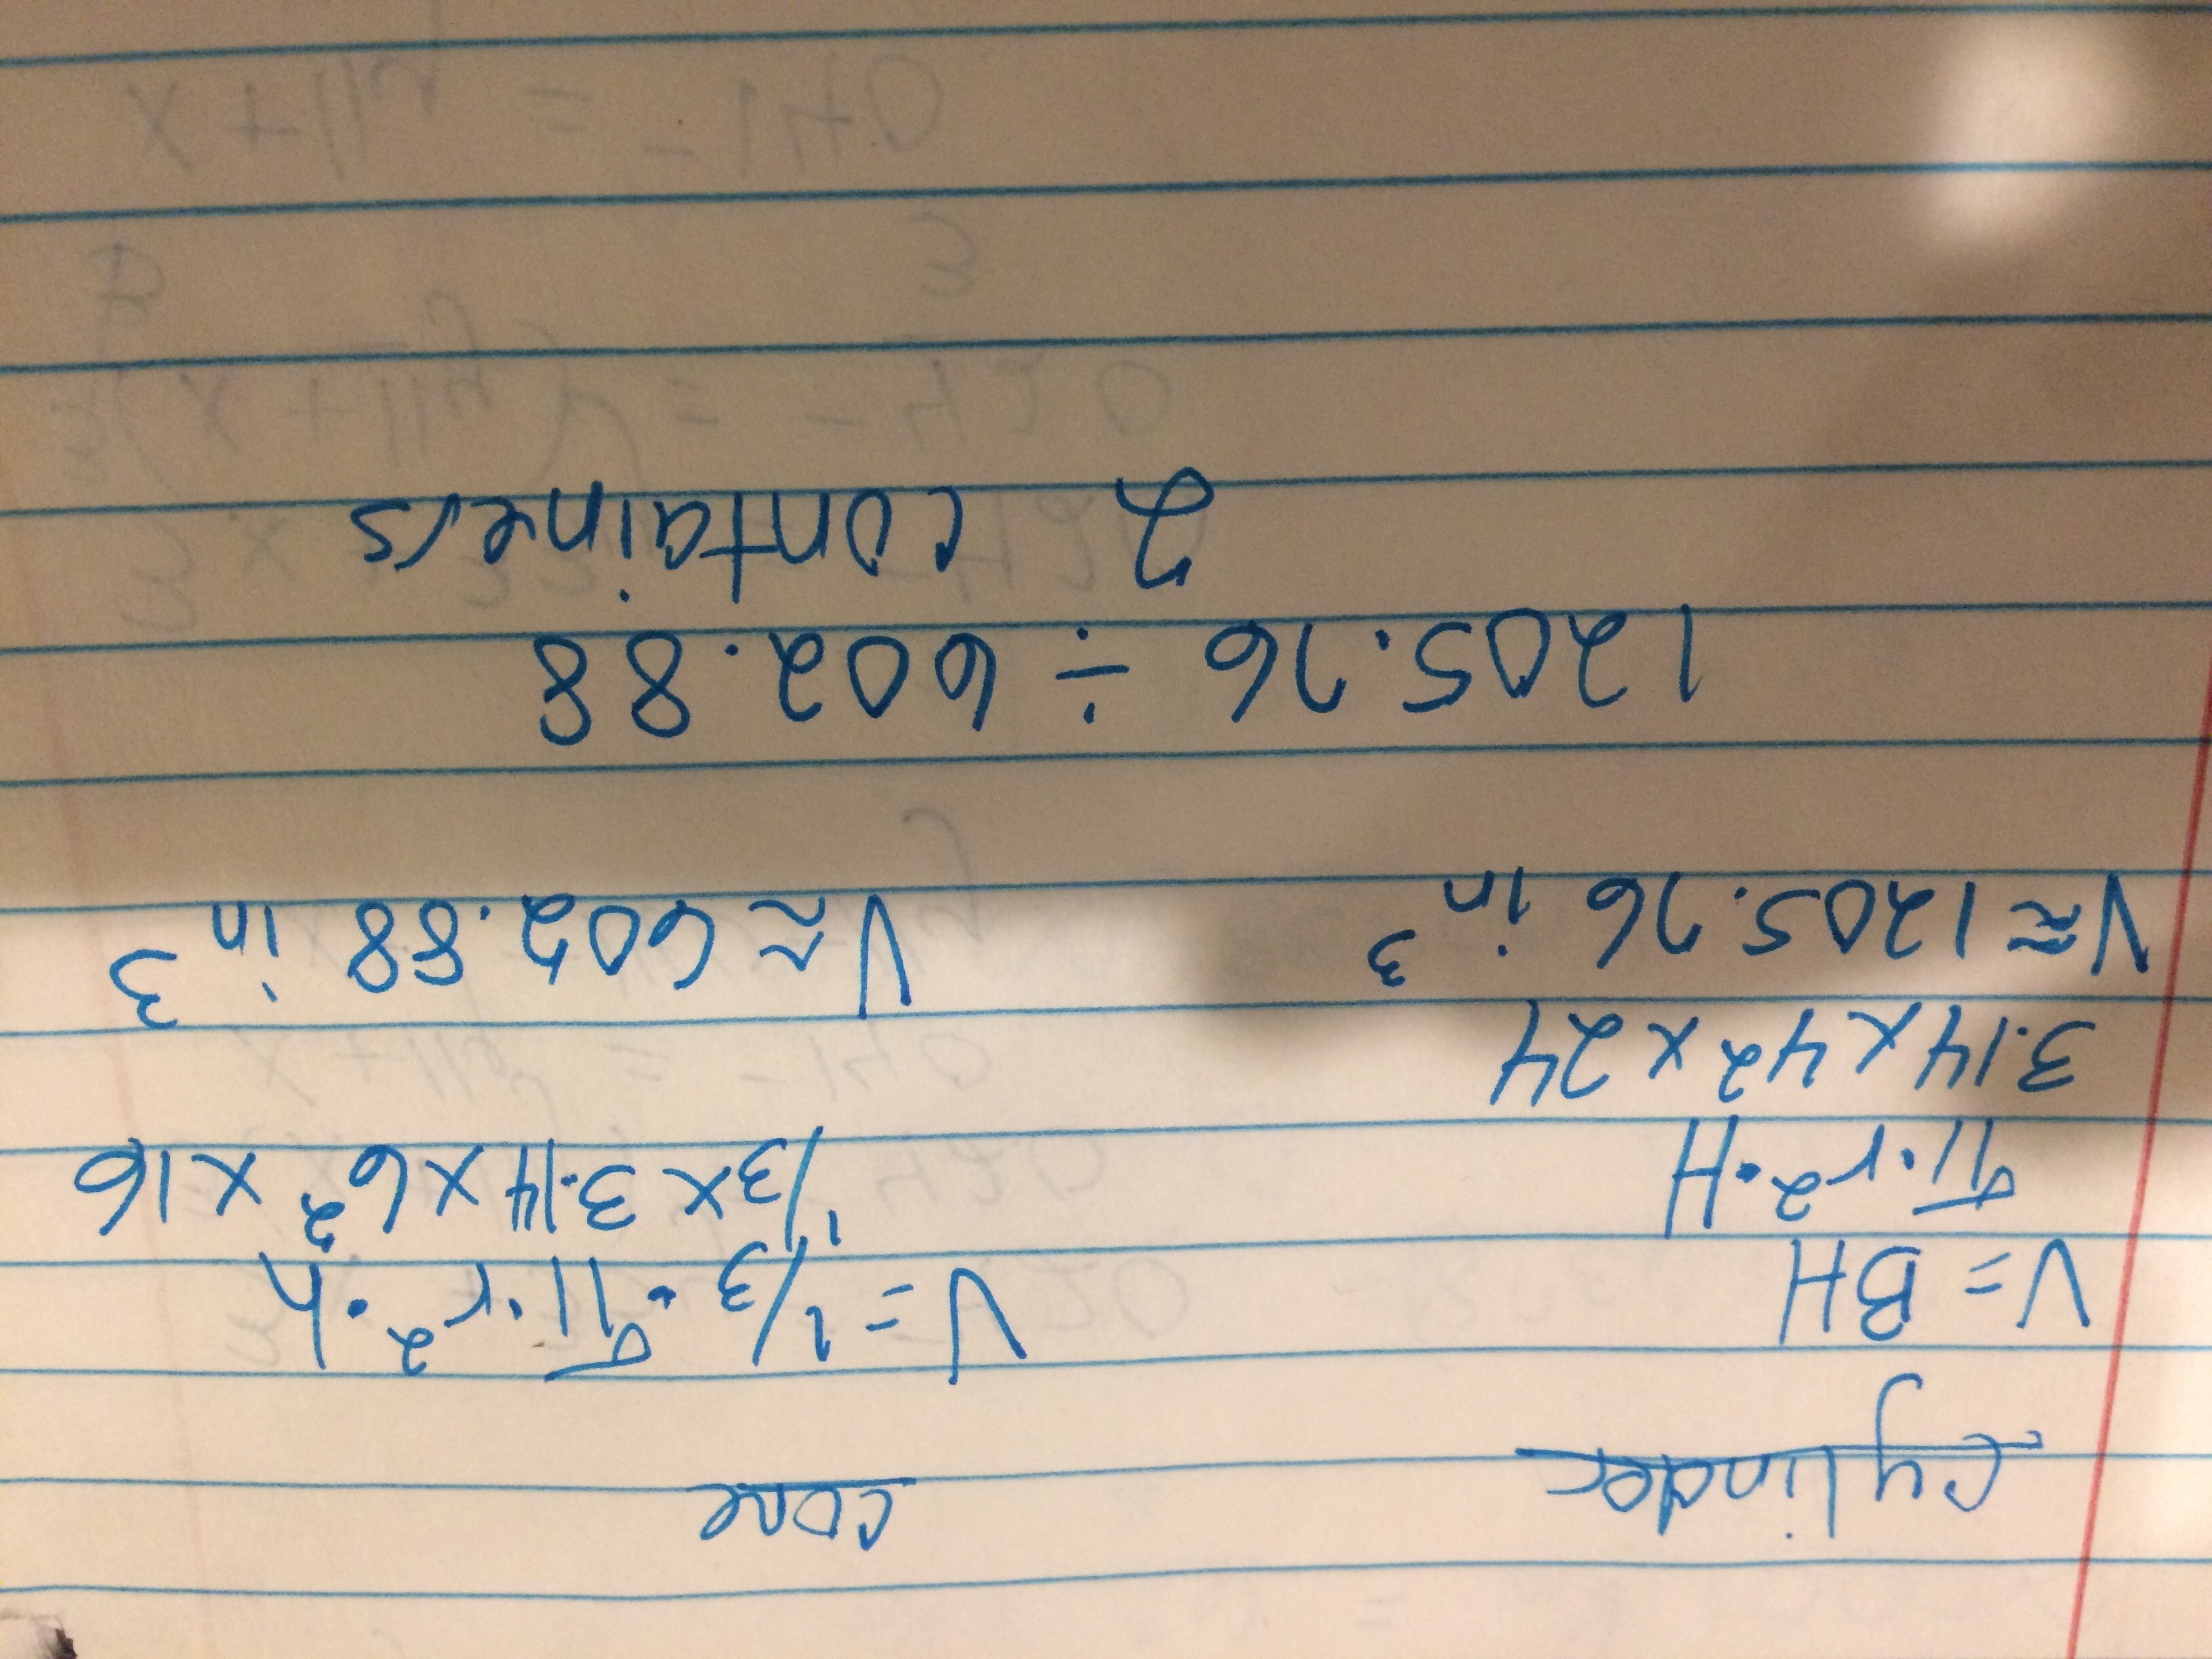 cylinder
V = BH
π·r²·H
3.14 x 4² x 24
V≈1205.76 in³
cone
V = 1/3·π·r²·h
1/3 x 3.14 x 6² x 16
V≈602.88 in³
1205.76 ÷ 602.88
2 containers